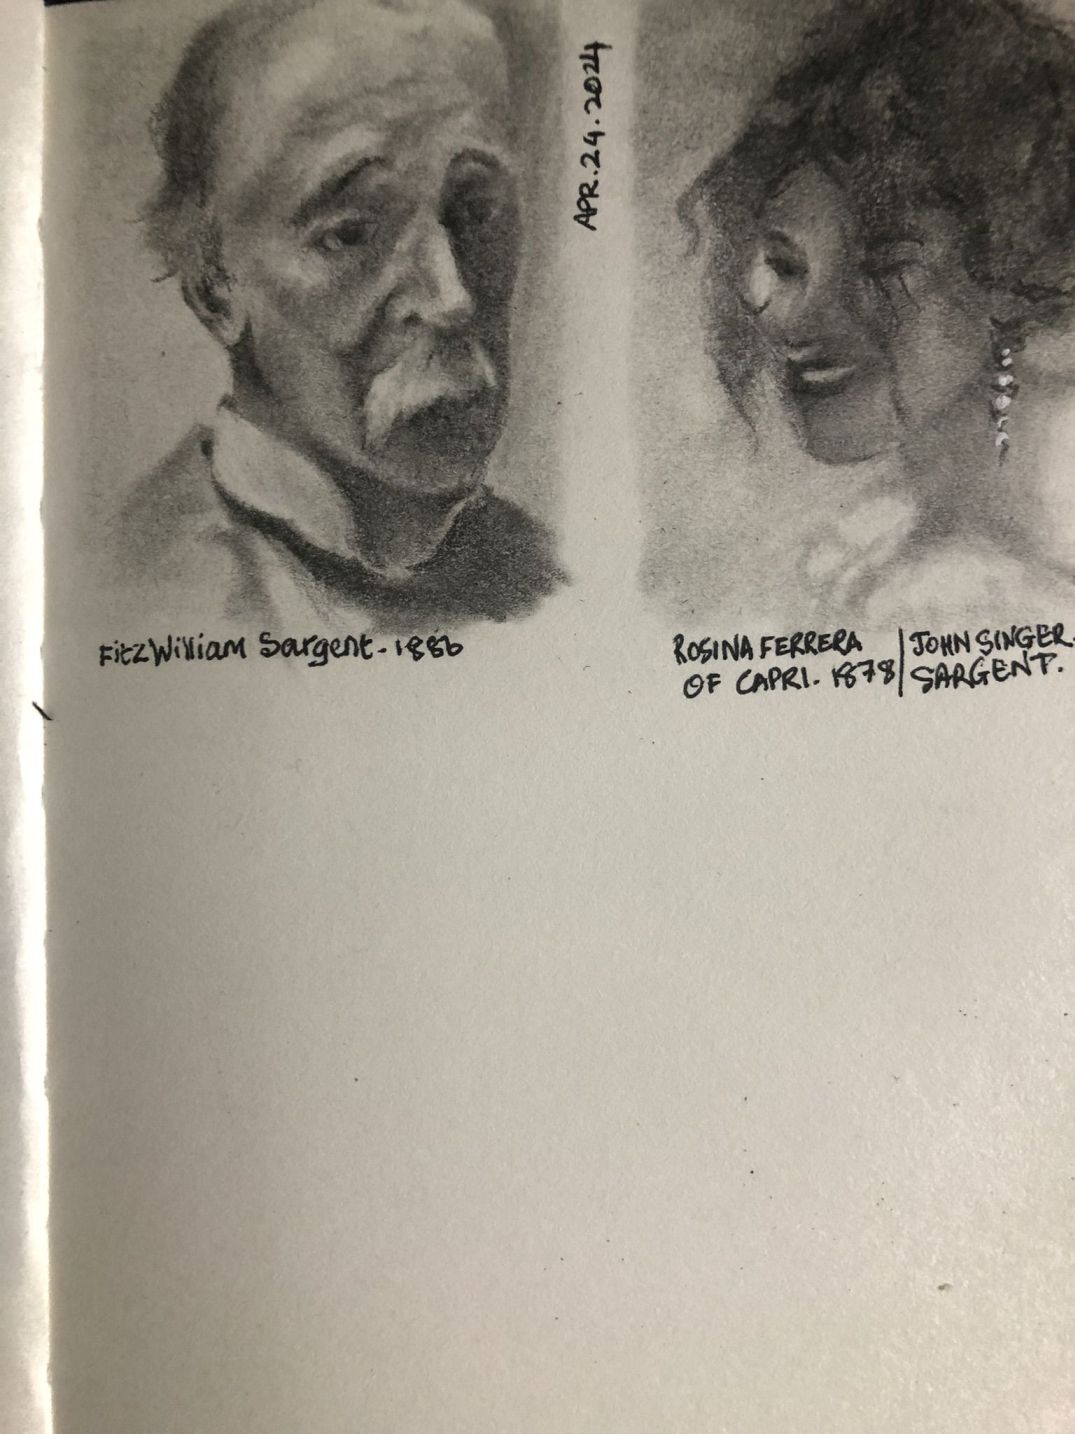 APR.24.2024
FitzWilliam Sargent-1886
ROSINA FERRERA
OF CAPRI. 1878
JOHN SINGER
SARGENT.